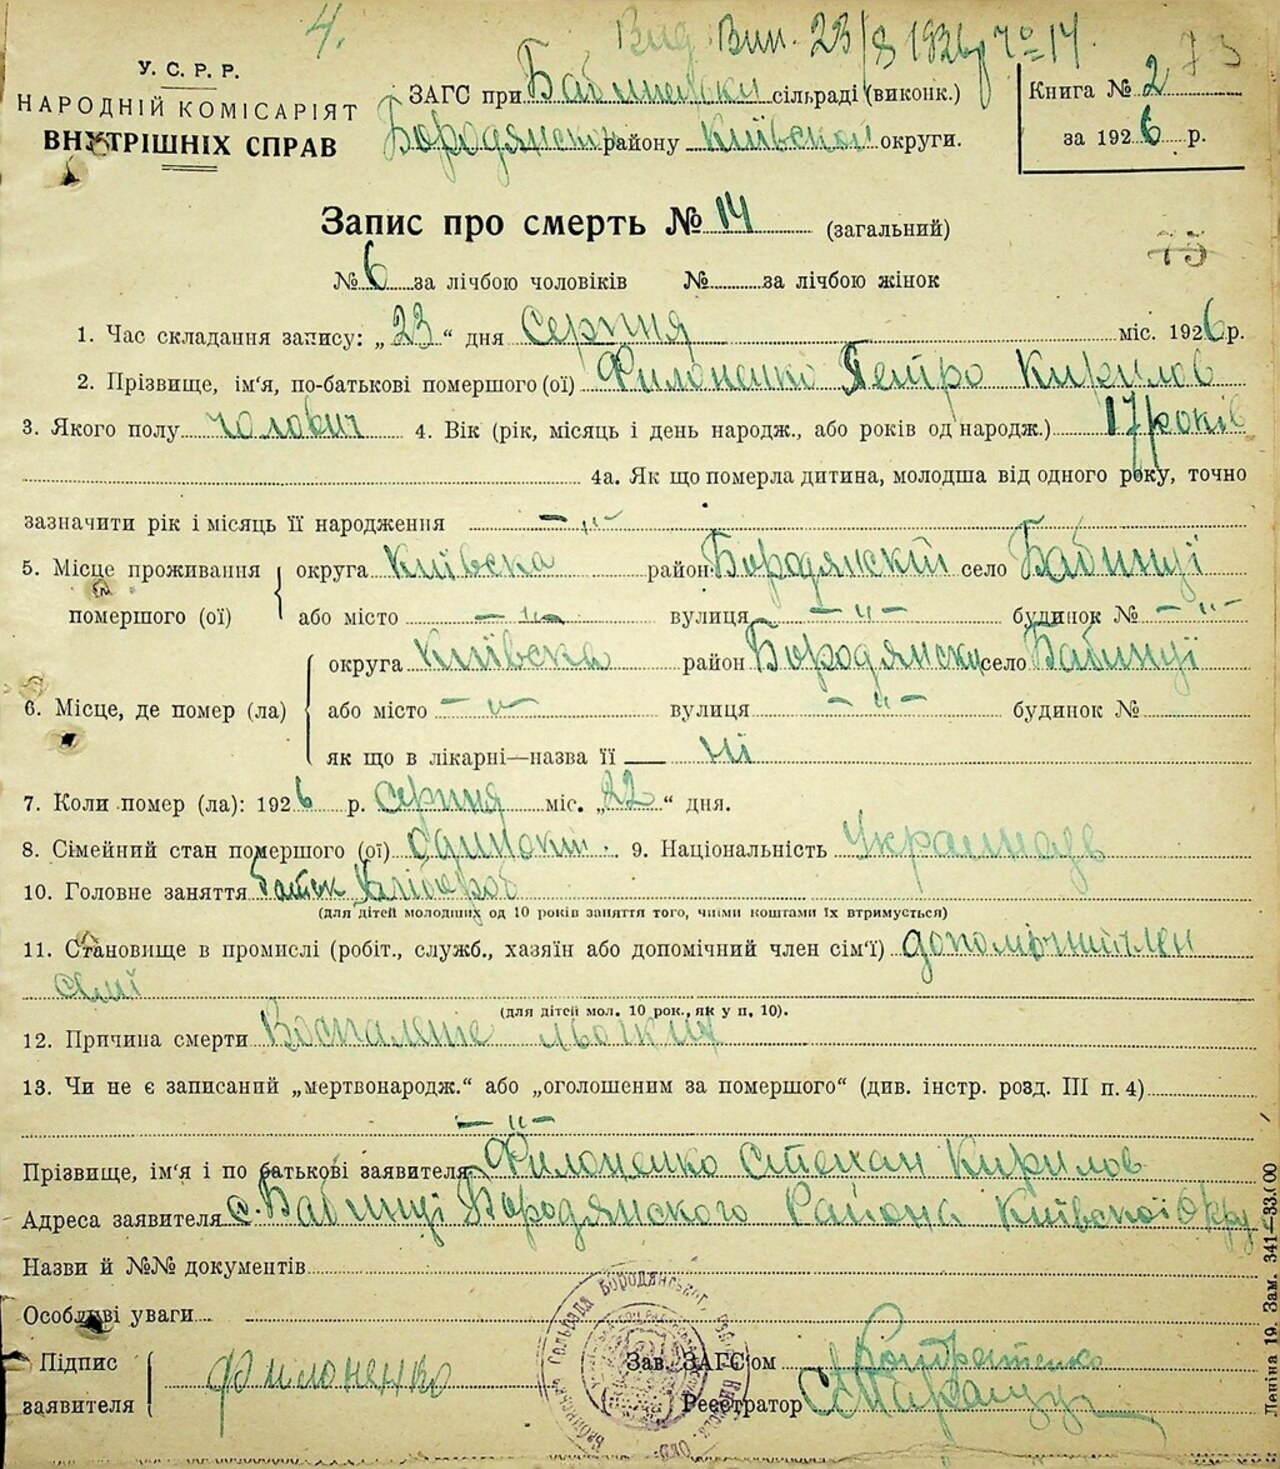 4. Вид. Вип. 23/8 1926 р № 14.
73
У. С. Р. Р.
НАРОДНІЙ КОМІСАРІЯТ
ВНУТРІШНІХ СПРАВ
ЗАГС при Бабинецьки сільраді (виконк.)
Бородянской району Київской округи.
Книга № 2
за 1926 р.
Запис про смерть № 14 (загальний)
75
№ 6 за лічбою чоловіків № за лічбою жінок
1. Час складання запису: „23“ дня Серпня міс. 1926 р.
2. Прізвище, ім'я, по-батькові помершого (ої) Филоненко Петро Кирилов
3. Якого полу чолович 4. Вік (рік, місяць і день народж., або років од народж.) 17 років
4а. Як що померла дитина, молодша від одного року, точно
зазначити рік і місяць її народження — „ —
5. Місце проживання помершого (ої) округа Київска район Бородянскій село Бабинці
або місто — „ — вулиця — „ — будинок № — „ —
6. Місце, де помер (ла) округа Київска район Бородянски село Бабинці
або місто — „ — вулиця — „ — будинок №
як що в лікарні—назва її ні
7. Коли помер (ла): 1926 р. серпня міс. „22“ дня.
8. Сімейний стан помершого (ої) одинокій. 9. Національність Украинець
10. Головне заняття батьк хлібороб
(для дітей молодших од 10 років заняття того, чиїми коштами їх втримується)
11. Становище в промислі (робіт., служб., хазяїн або допомічний член сім'ї) допомічний член
семі
(для дітей мол. 10 рок., як у п. 10).
12. Причина смерти Воспаление льогких
13. Чи не є записаний „мертвонародж.“ або „оголошеним за помершого“ (див. інстр. розд. III п. 4)
— „ —
Прізвище, ім'я і по батькові заявителя Филоненко Степан Кирилов
Адреса заявителя с. Бабинці Бородянского Района Київской Окру
Назви й №№ документів
Особливі уваги
Підпис заявителя Филоненко
Зав. ЗАГС'ом Кондратенко
Реєстратор
Леніна 19. Зам. 341—33.000